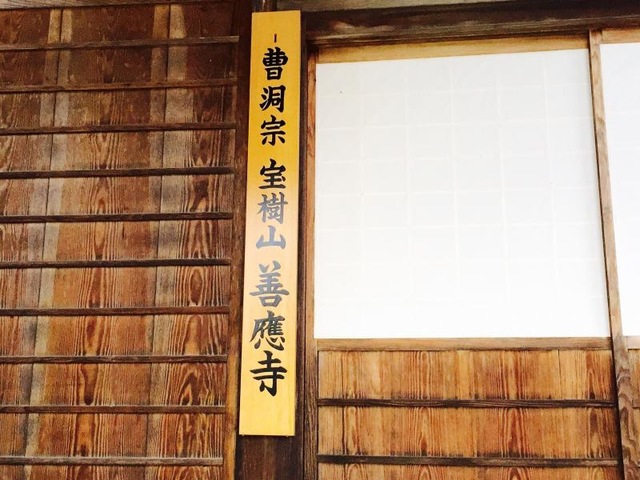 曹洞宗 宝樹山 善應寺